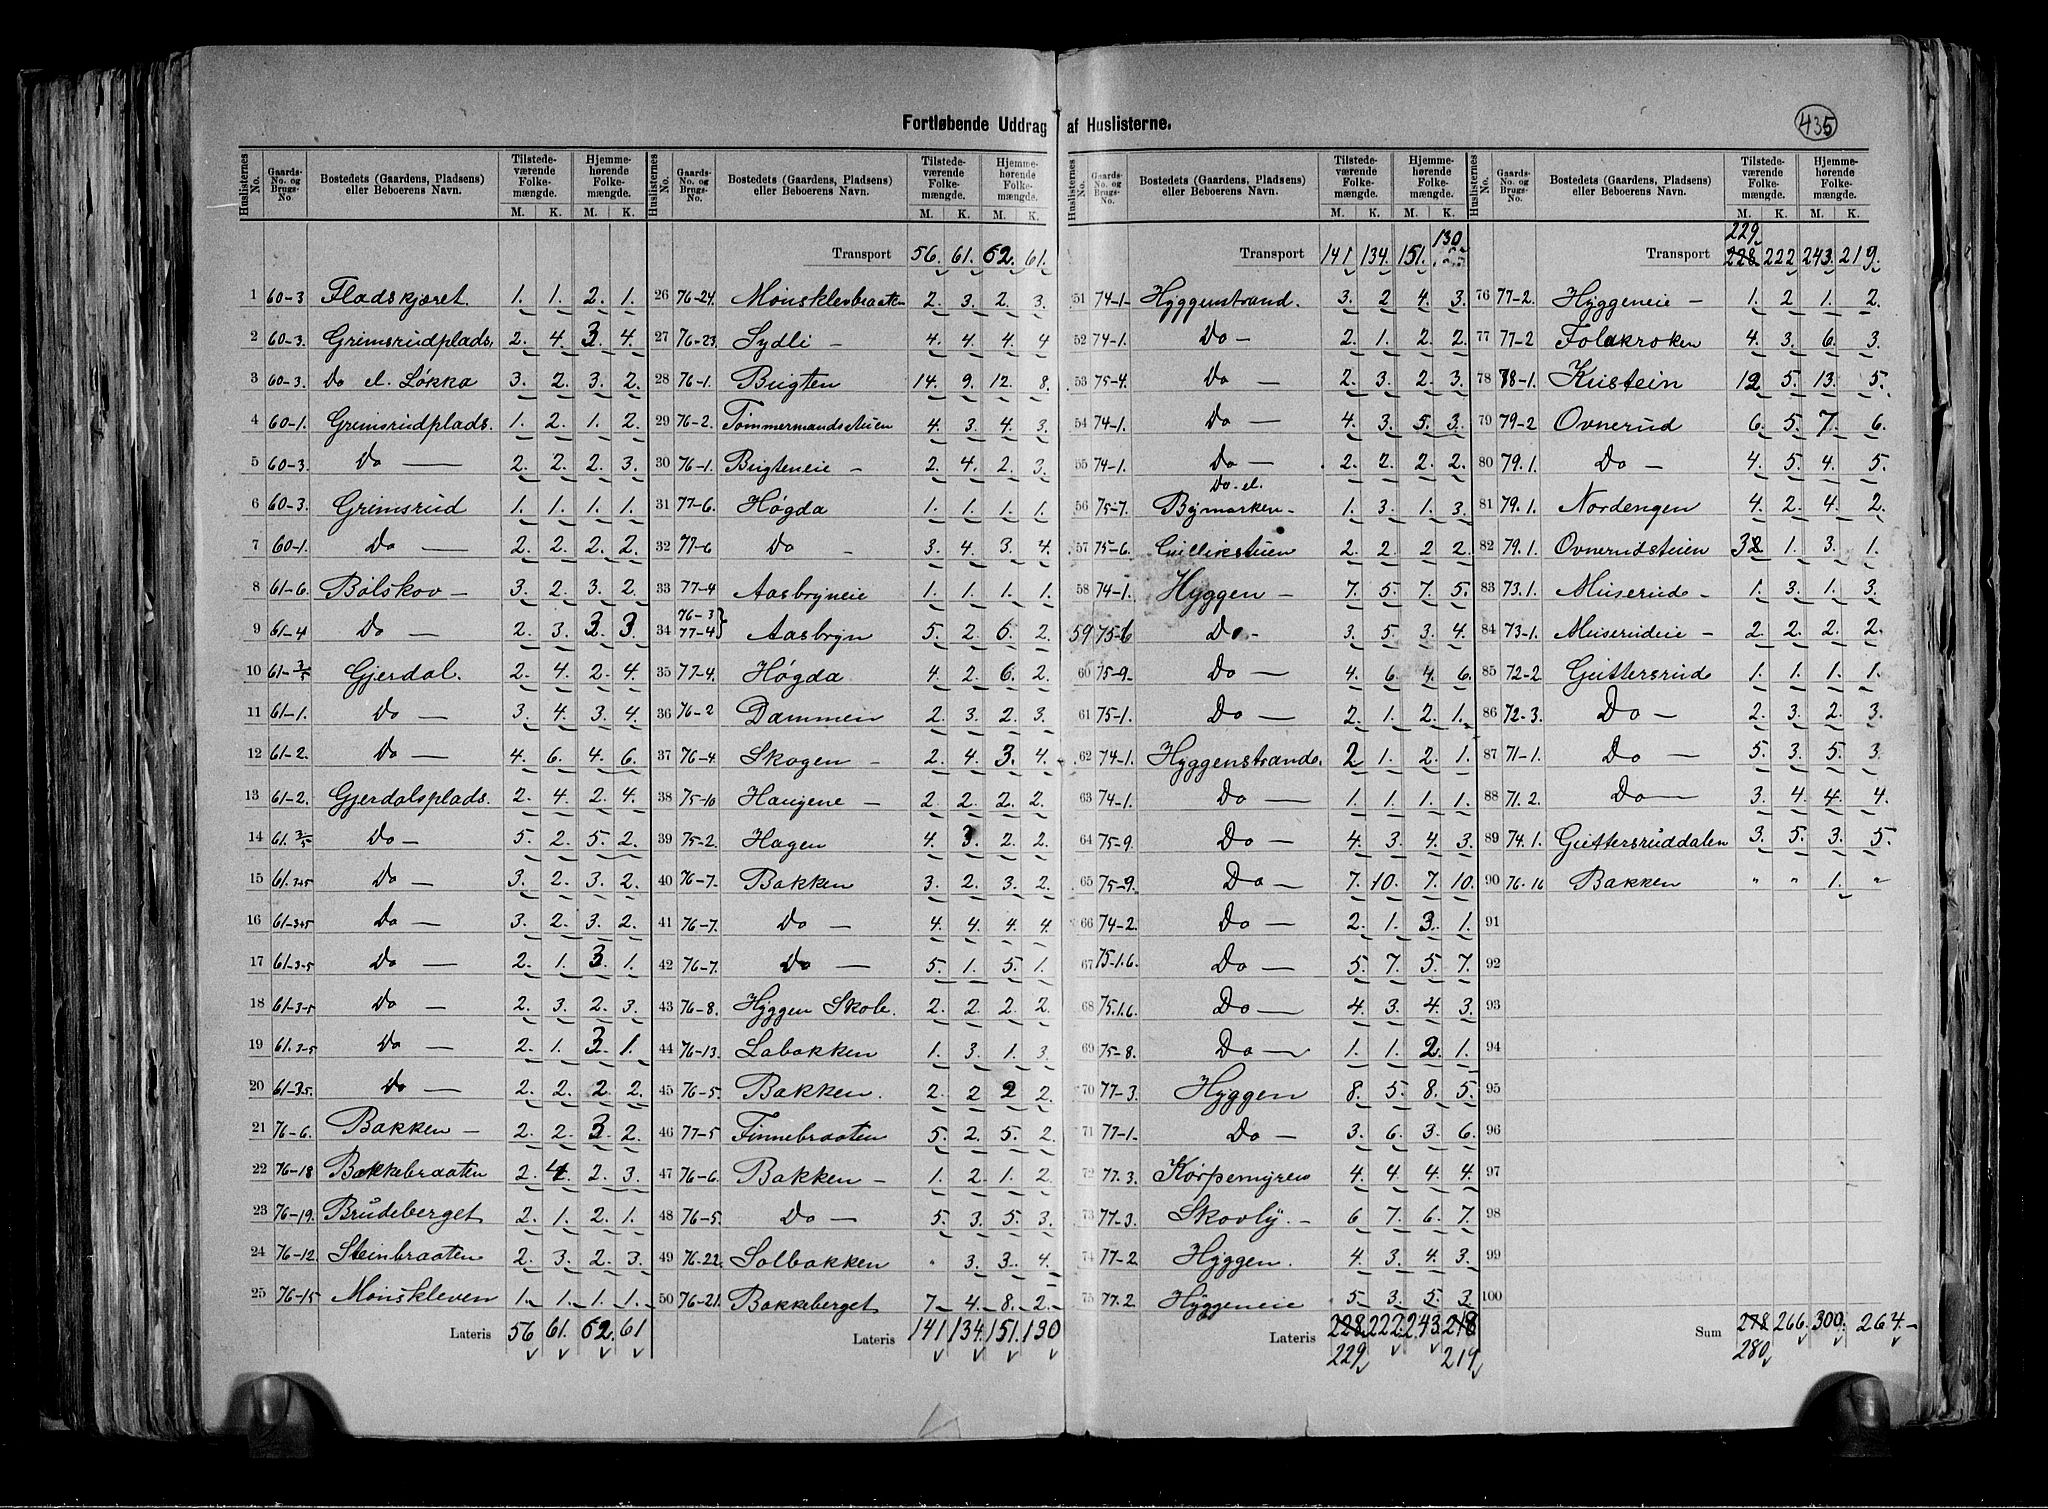 Fortløbende Uddrag af Huslisterne.
435
Huslisternes No. | Gaards-No. og Brugs-No | Bostedets (Gaardens, Pladsens) eller Beboerens Navn. | Tilstedeværende Folkemængde. M. K. | Hjemmehørende Folkemængde. M. K.
1 60-3 Fladskjæret. 1. 1. 2. 1.
2 60-3. Grimsrudplads. 2. 4. 3. 4.
3 60-3. Do el. Løkka 3. 2. 3. 2.
4 60-1. Grimsrudplads. 1. 2. 1. 2.
5 60-3. Do — 2. 2. 2. 3.
6 60-3. Grimsrud 1. 1. 1. 1.
7 60-1. Do — 2. 2. 2. 2.
8 61-6. Bølskov — 3. 2. 3. 2.
9 61-4 Do — 2. 3. 2. 3.
10 61-3/5 Gjerdal. 2. 4. 2. 4.
11 61-1. Do — 3. 4. 3. 4.
12 61-2. Do — 4. 6. 4. 6.
13 61-2. Gjerdalsplads. 2. 4. 2. 4.
14 61.3/5 Do — 5. 2. 5. 2.
15 61.3+5 Do — 3. 2. 3. 2.
16 61-3+5 Do — 3. 2. 3. 2.
17 61-3-5 Do — 2. 1. 3. 1.
18 61-3-5 Do — 2. 3. 2. 3.
19 61.3-5 Do — 2. 1. 3. 1.
20 61-3.5. Do — 2. 2. 2. 2.
21 76-6. Bakken — 2. 2. 3. 2.
22 76-18 Bakkebraaten 2. 4. 2. 3.
23 76-19. Brudeberget 2. 1. 2. 1.
24 76-12 Steinbraaten 2. 3. 2. 3.
25 76-15 Monskleven 1. 1. 1. 1.
Lateris 56 61. 62. 61
Huslisternes No. | Gaards-No. og Brugs-No | Bostedets (Gaardens, Pladsens) eller Beboerens Navn. | Tilstedeværende Folkemængde. M. K. | Hjemmehørende Folkemængde. M. K.
Transport 56. 61. 62. 61.
26 76-24. Monsklevbraaten 2. 3. 2. 3.
27 76-23 Sydli — 4. 4. 4. 4
28 76-1. Bugten 14. 9. 12. 8.
29 76-2. Tømmermandsstuen 4. 3. 4. 3.
30 76-1. Bugteneie — 2. 4. 2. 3.
31 77-6. Høgda 1. 1. 1. 1.
32 77-6 Do — 3. 4. 3. 4.
33 77-4 Aasbryneie 1. 1. 1. 1.
34 76-3 77-4 } Aasbryn 5. 2. 6. 2.
35 77-4. Høgda 4. 2. 6. 2.
36 76-2 Dammen 2. 3. 2. 3.
37 76-4 Skogen — 2. 4. 3. 4.
38 75-10 Haugene — 2. 2. 2. 2.
39 75-2. Hagen 4. 3. 2. 2.
40 76-7. Bakken 3. 2. 3. 2.
41 76-7. Do — 4. 4. 4. 4.
42 76-7. Do — 5. 1. 5. 1.
43 76-8. Hyggen Skole. 2. 2. 2. 2
44 76-13. Labakken 1. 3. 1. 3
45 76-5. Bakken. 2. 2 2 2.
46 77-5 Finnebraaten 5. 2. 5. 2.
47 76-6. Bakken — 1. 2. 1. 2
48 76-5. Do — 5. 3. 5. 3.
49 76-22. Solbakken " 3. 3. 4.
50 76-21. Bakkeberget 7 4. 8. 2.
Lateris 141 134. 151. 130
Huslisternes No. | Gaards-No. og Brugs-No. | Bostedets (Gaardens, Pladsens) eller Beboerens Navn. | Tilstedeværende Folkemængde. M. K. | Hjemmehørende Folkemængde. M. K.
Transport 141 134. 151. 130
51 74-1. Hyggenstrand. 3. 2 4. 3.
52 74-1. Do — 2. 1. 2. 2.
53 75-4. Do — 2. 3. 2. 3.
54 74-1. Do — 4. 3. 5. 3.
55 74-1. Do — 2. 2. 2. 2.
56 75-7. Do. el. Bymarken — 1. 3. 1. 3.
57 75-6. Gullikstuen 2. 2. 2. 2
58 74-1. Hyggen — 7. 5. 7. 5.
59 75-6 Do — 3. 5. 3. 4.
60 75-9. Do — 4. 6. 4. 6.
61 75-1. Do — 2. 1. 2. 1.
62 74-1. Hyggenstrand. 2 1. 2. 1.
63 74-1. Do — 1. 1. 1. 1.
64 75-9. Do — 4. 3. 4. 3.
65 75-9. Do — 7. 10. 7. 10.
66 74-2. Do — 2. 1. 3. 1.
67 75-1.6. Do — 5. 7. 5. 7.
68 75.1.6. Do — 4. 3. 4. 3.
69 75-8. Do — 1. 1. 2. 1.
70 77-3. Hyggen 8. 5. 8. 5.
71 77-1. Do — 3. 6. 3. 6.
72 77.3. Korpemyren 4. 4. 4. 4.
73 77-3. Skovly. — 6. 7. 6. 7.
74 77-2. Hyggen. 4. 3. 4. 3.
75 77.2 Hyggeneie 5. 3. 5. 3
Lateris 228. 222. 243. 218
229 219
Huslisternes No. | Gaards-No. og Brugs-No. | Bostedets (Gaardens, Pladsens) eller Beboerens Navn. | Tilstedeværende Folkemængde. M. K. | Hjemmehørende Folkemængde. M. K.
229
Transport 228 222 243. 219.
76 77-2. Hyggeneie — 1. 2 1. 2.
77 77-2 Folakroken 4. 3. 6. 3.
78 78-1. Kustein 12 5. 13. 5.
79 79-2 Ovnerud 6. 5. 7. 6.
80 79.1. Do — 4. 5. 4. 5.
81 79.1. Nordengen 4. 2. 4. 2.
82 79.1. Ovnerudstuen 3 1. 3. 1.
83 73.1. Muserud — 1. 3. 1. 3.
84 73-1. Muserudeie — 2. 2. 2. 2.
85 72-2. Guttersrud 1. 1. 1. 1.
86 72-3. Do — 2. 3. 2. 3.
87 71-1. Do — 5. 3. 5. 3.
88 71.2. Do — 3. 4. 4. 4.
89 74.1. Guttersruddalen 3. 5. 3. 5.
90 76-16 Bakken " " 1. "
91
92
93
94
95
96
97
98
99
100
Sum 278 266. 300. 264.
280